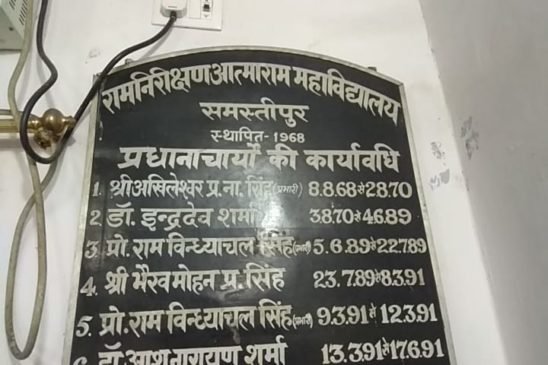 रामनिरीक्षण आत्माराम महाविद्यालय
समस्तीपुर
स्थापित-1968
प्रधानाचार्यों की कार्यावधि
1. श्री अखिलेश्वर प्र. ना. सिंह (प्रभारी) 8.8.68 से 2.8.70
2 डॉ. इन्द्रदेव शर्मा 3.8.70 से 4.6.89
3. प्रो. राम विन्ध्याचल सिंह (प्रभारी) 5.6.89 से 22.7.89
4. श्री भैरव मोहन प्र. सिंह 23.7.89 से 8.3.91
5. प्रो. राम विन्ध्याचल सिंह (प्रभारी) 9.3.91 से 12.3.91
6. डॉ. आश नारायण शर्मा 13.3.91 से 17.6.91